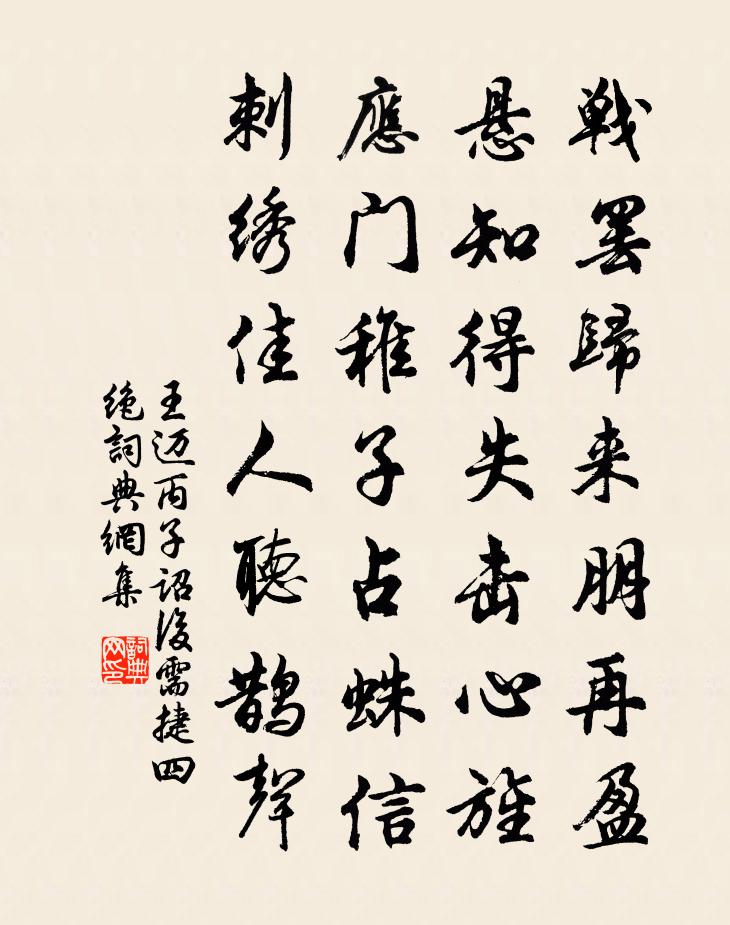 戦罢歸来朋再盈
悬知得失击心旌
應门稚子占蛛信
刺绣佳人聽鵲聲
王迈丙子詔後需捷四
绝詞典網集
詞典
网印